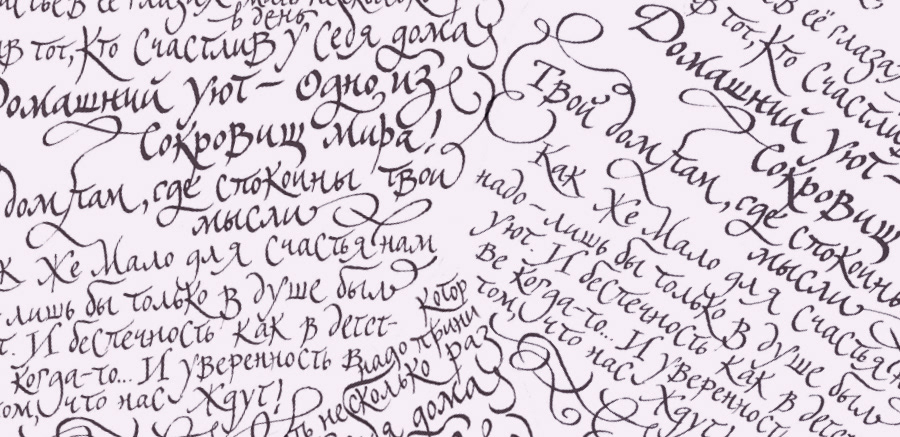 в её глазах
в день
в тот, кто счастлив у себя дома
Домашний уют – одно из
сокровищ мира!
дом там, где спокойны твои
мысли
Же Мало для счастья нам
лишь бы только в душе был
И беспечность как в детст-
когда-то... И уверенность в
том, что нас Ждут!
котор
надо прини
несколько раз
дома
в её глазах
в тот, кто счастлив
Домашний уют –
сокровищ
Твой дом там, где спокойны
мысли
Как Же Мало для счастья
надо – лишь бы только в душе был
уют. И беспечность как в детст-
ве когда-то... И уверенность
том, что нас Ждут!